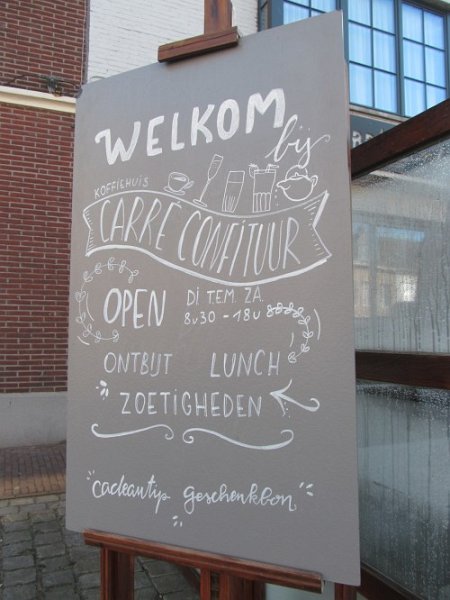 WELKOM
bij
KOFFIEHUIS
CARRÉ CONFITUUR
OPEN DI TEM. ZA.
8u30 - 18u
ONTBIJT LUNCH
ZOETIGHEDEN
cadeautip geschenkbon